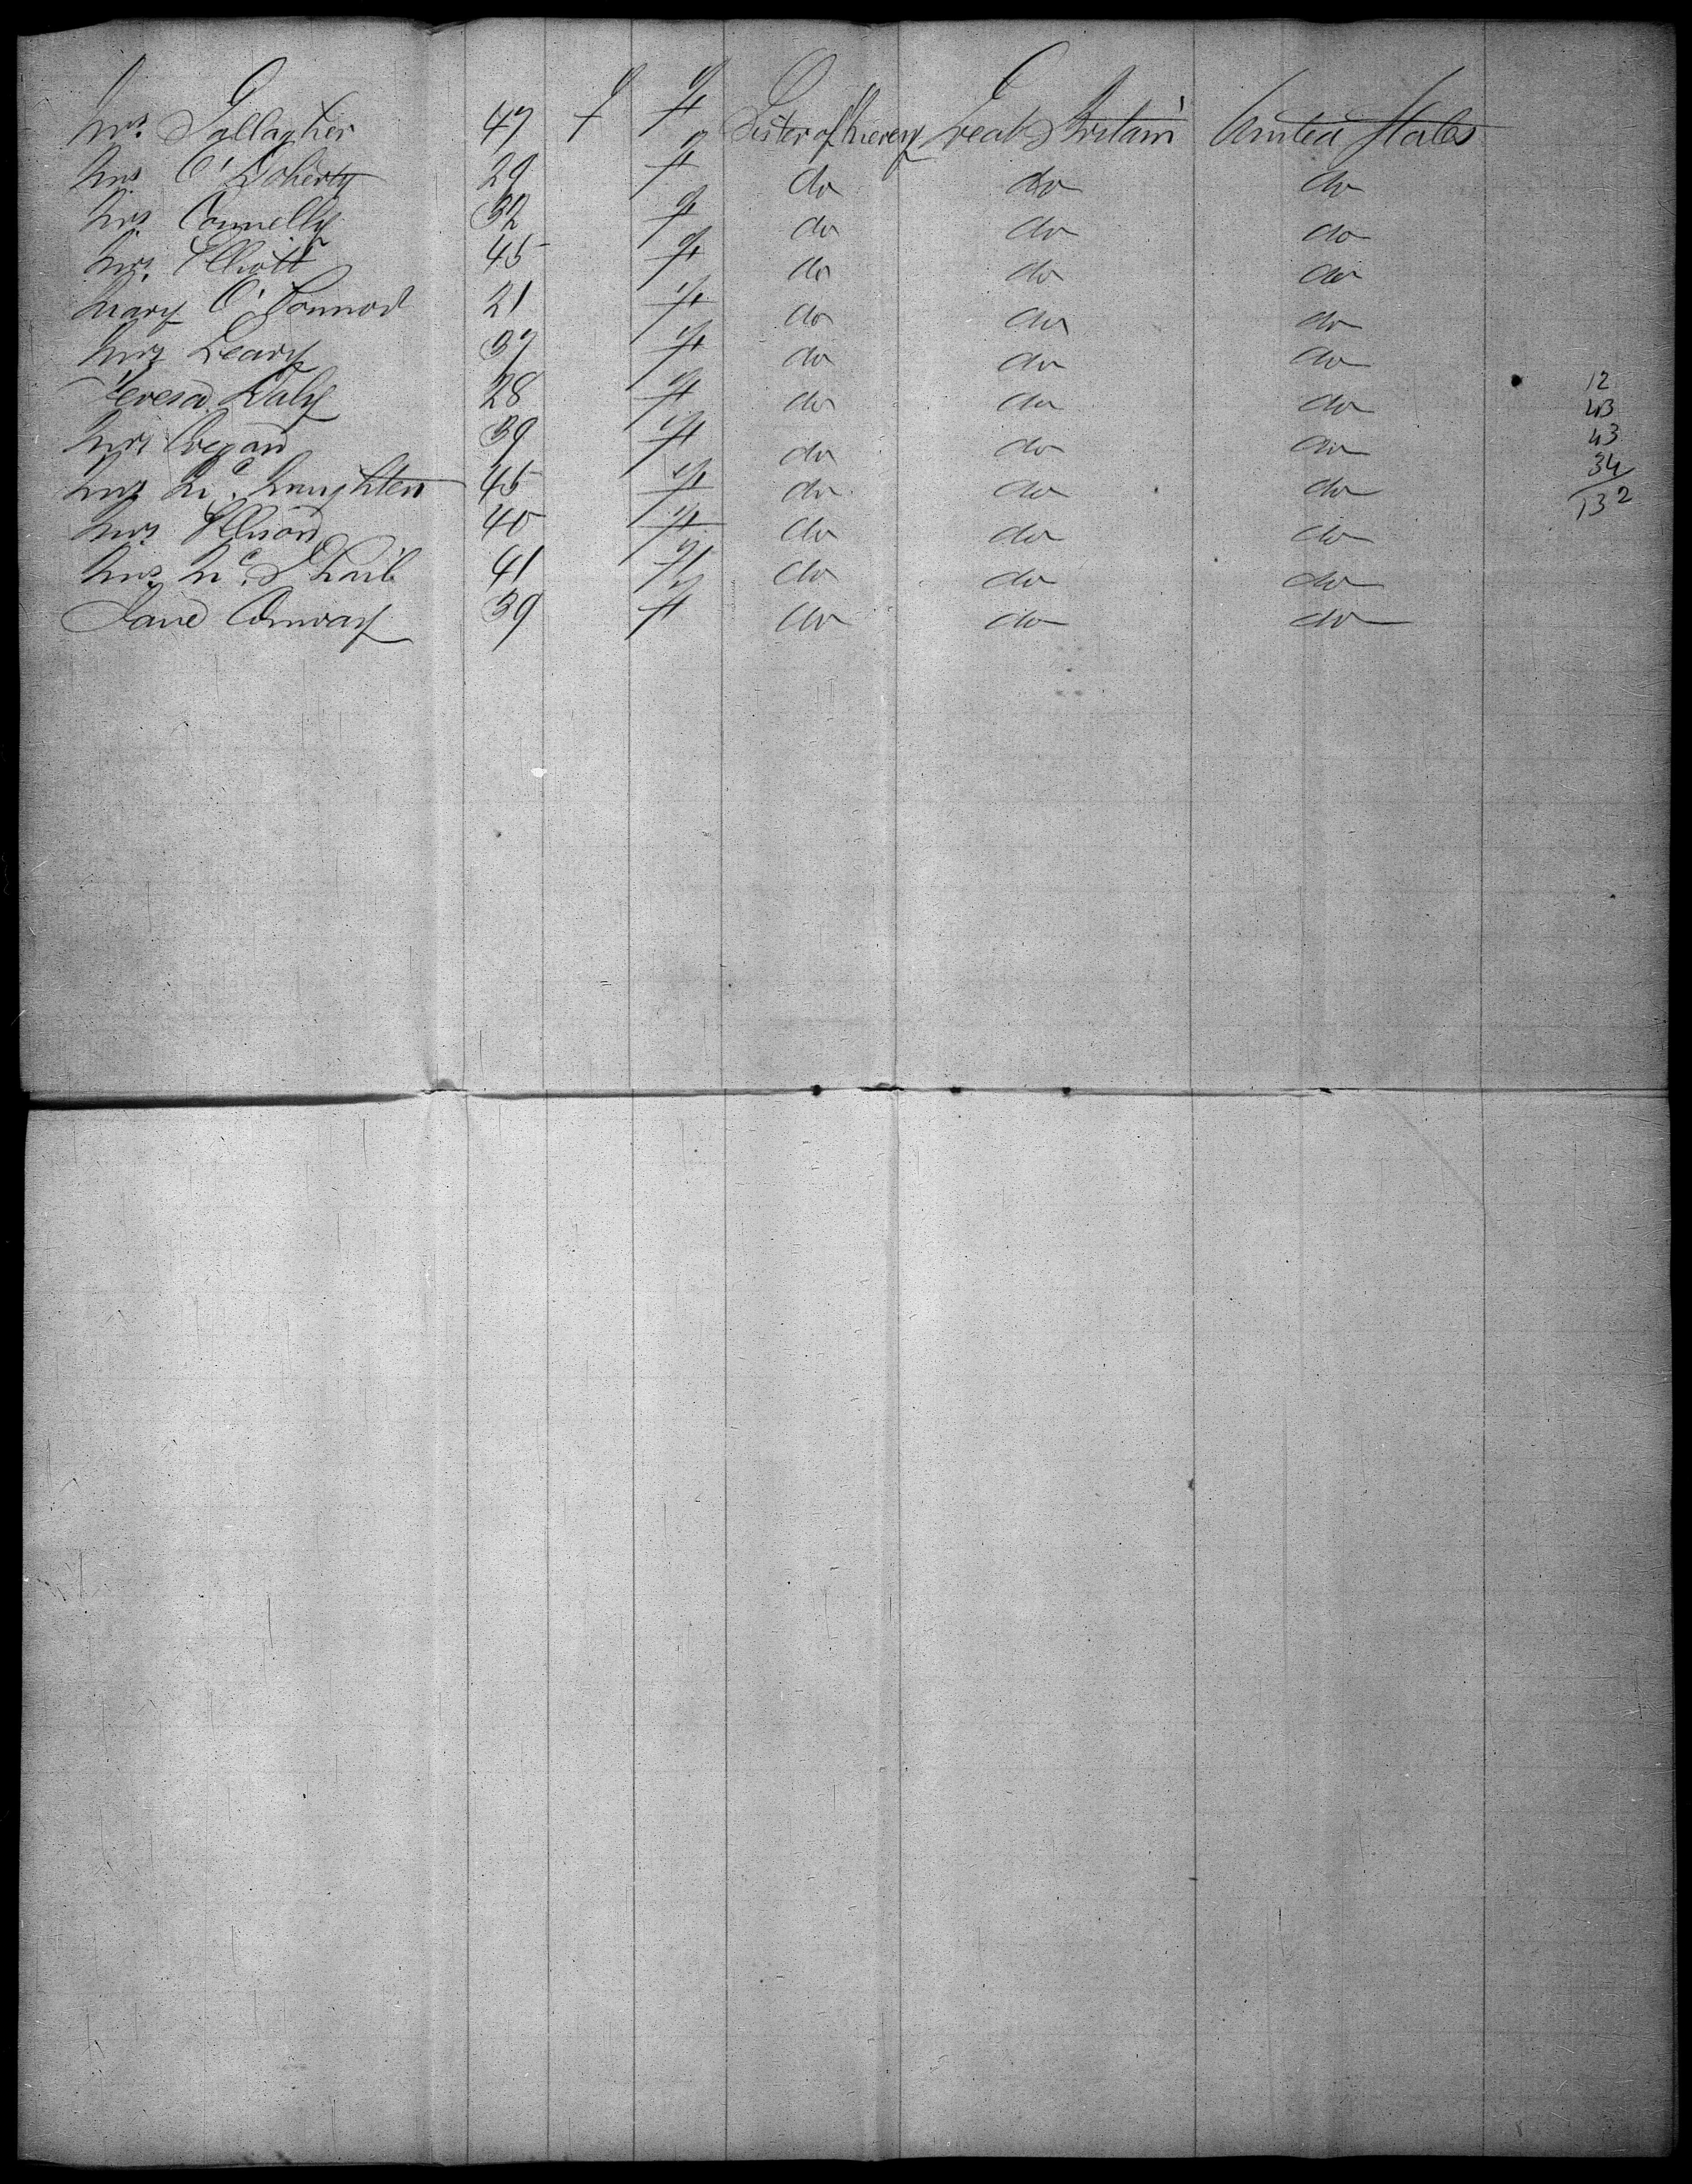 Mrs. Gallagher 47 f f Sister of Mercy Great Britain United States
Mrs O'Doherty 29 f do do do
Mrs Connelly 32 f do do do
Mrs. Elliott 45 f do do do
Mary O'Connor 21 f do do do
Mrs Leary 37 f do do do
Teresa Daly 28 f do do do 12
Mrs Cregan 39 f do do do 43
Mrs Mc. Naughten 45 f do do do 43
Mrs. Ellison 40 f do do do 34
Mrs Mc. 41 f do do do 132
Jane Conway 39 f do do do